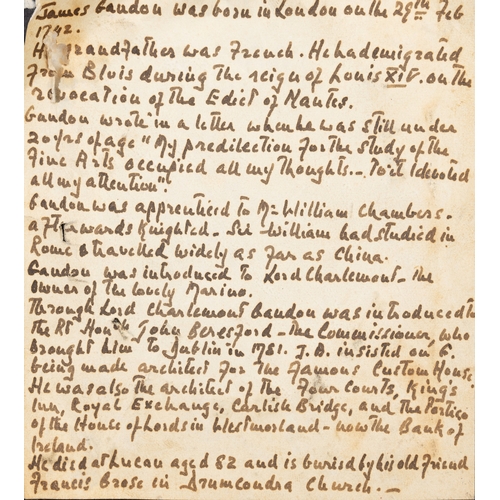 James Gandon was born in London on the 29th Feb
1742.
His grandfather was French. He had emigrated
From Blois during the reign of Louis XIV. on the
revocation of the Edict of Nantes.
Gandon wrote in a letter when he was still under
20 yrs of age "My predilection for the study of the
Fine Arts occupied all my thoughts. - To it I devoted
all my attention".
Gandon was apprenticed to Mr William Chambers -
afterwards Knighted - Sir - William had studied in
Rome & travelled widely as far as China.
Gandon was introduced to Lord Charlemont - the
owner of the lovely Marino.
Through Lord Charlemont Gandon was introduced to
the Rt Honble John Beresford - the Commissioner, who
brought him to Dublin in 1781. J.B. insisted on G.
being made architect for the Famous Custom House.
He was also the architect of the Four Courts, King's
Inn, Royal Exchange, Carlish Bridge, and the Portico
of the House of Lords in Westmorland - now the Bank of
Ireland.
He died at Lucan aged 82 and is buried by his old Friend
Francis Grose in Drumcondra Church. -